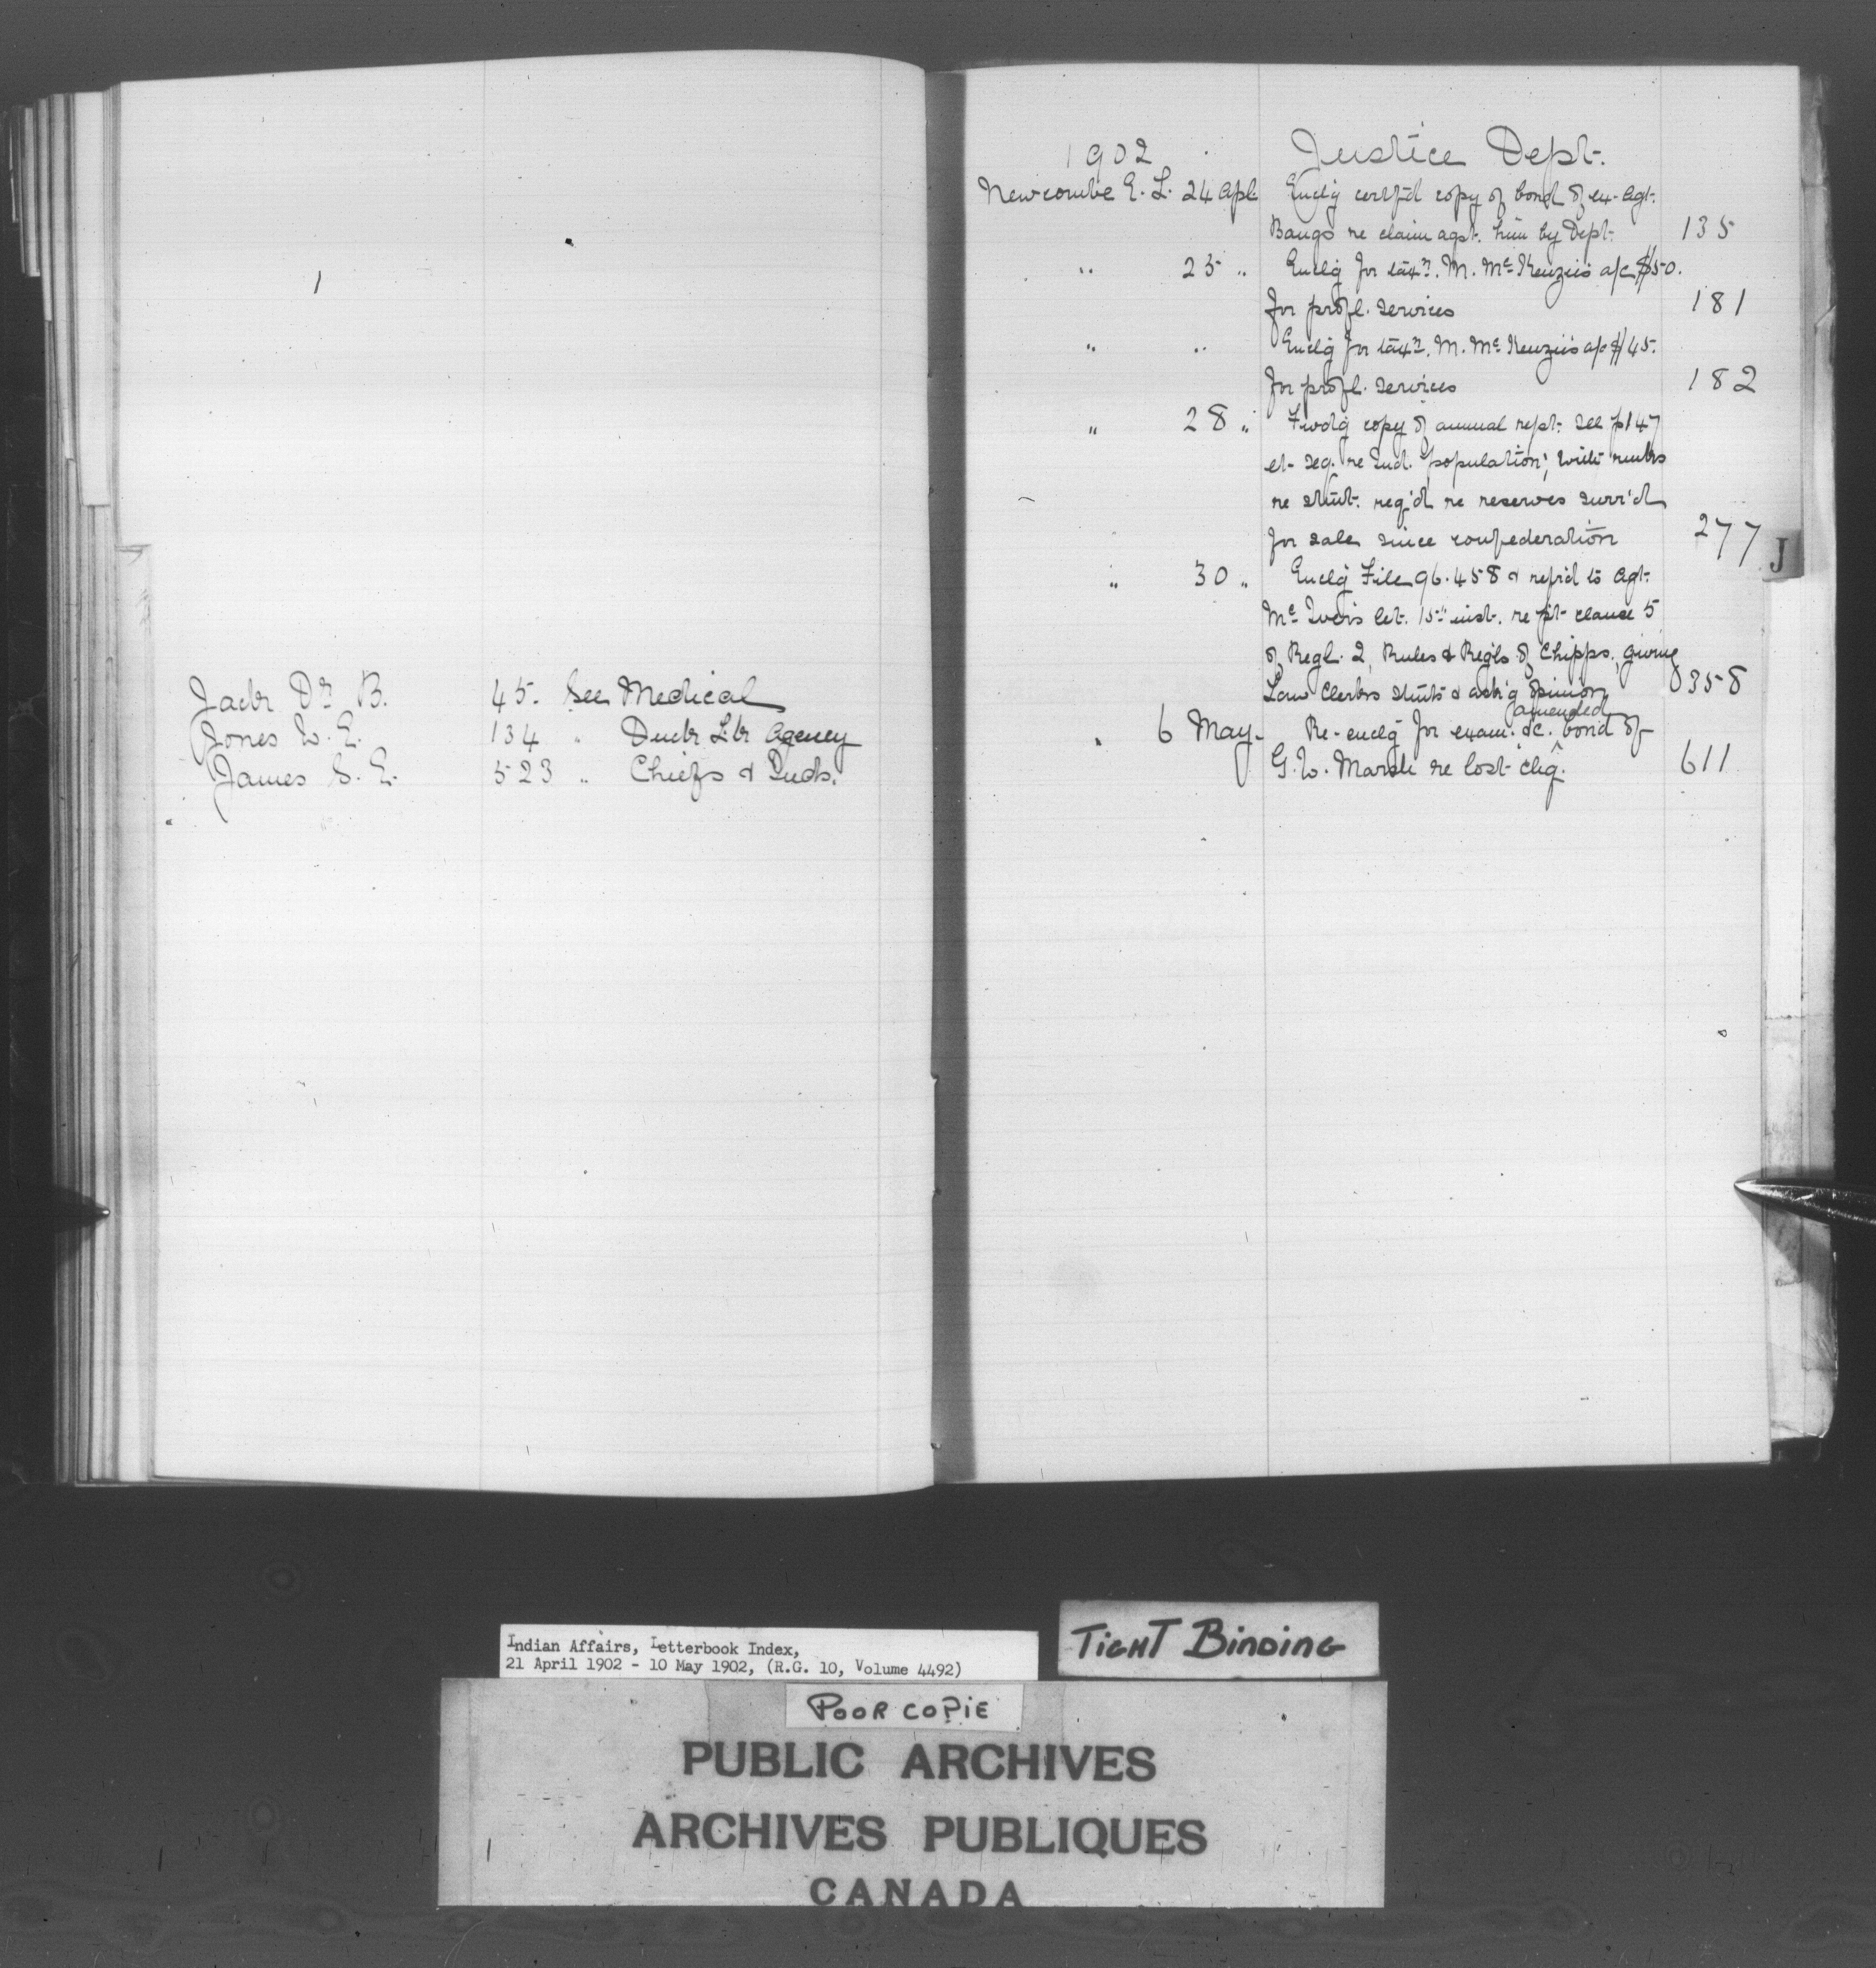 Jack Dr B. 45. See Medical
Jones W. E. 134 " Duck Lk Agency
James S. E. 523 " Chiefs & Inds.
1902 Justice Dept.
Newcombe E. L. 24 Apl. Enclg certf'd copy of bond of ex-Agt.
Bangs re claim agst. him by Dept. 135
" 25 " Enclg for taxn. M. McKenzie's a/c $50.
for profl. services 181
" " Enclg for taxn. M. McKenzie's a/c $45.
for profl. services 182
" 28 " Fwdg copy of annual rept. see p147
et seq. re Ind. population; with rmks
re stmt. req'd re reserves surr'd
for sale since confederation 277
J
" 30 " Enclg File 96.458 & refr'd to Agt.
McIver's let. 15" inst. re clause 5
of Regl. 2, Rules & Regls of Chipps. giving
Law Clerks stmts & ask'g opinion 358
amended
" 6 May. Re-enclg for exam. &c. ^ bond of
G. W. Marsh re lost chq. 611
Indian Affairs, Letterbook Index,
21 April 1902 - 10 May 1902, (R.G. 10, Volume 4492)
TIGHT BINDING
POOR COPIE
PUBLIC ARCHIVES
ARCHIVES PUBLIQUES
CANADA